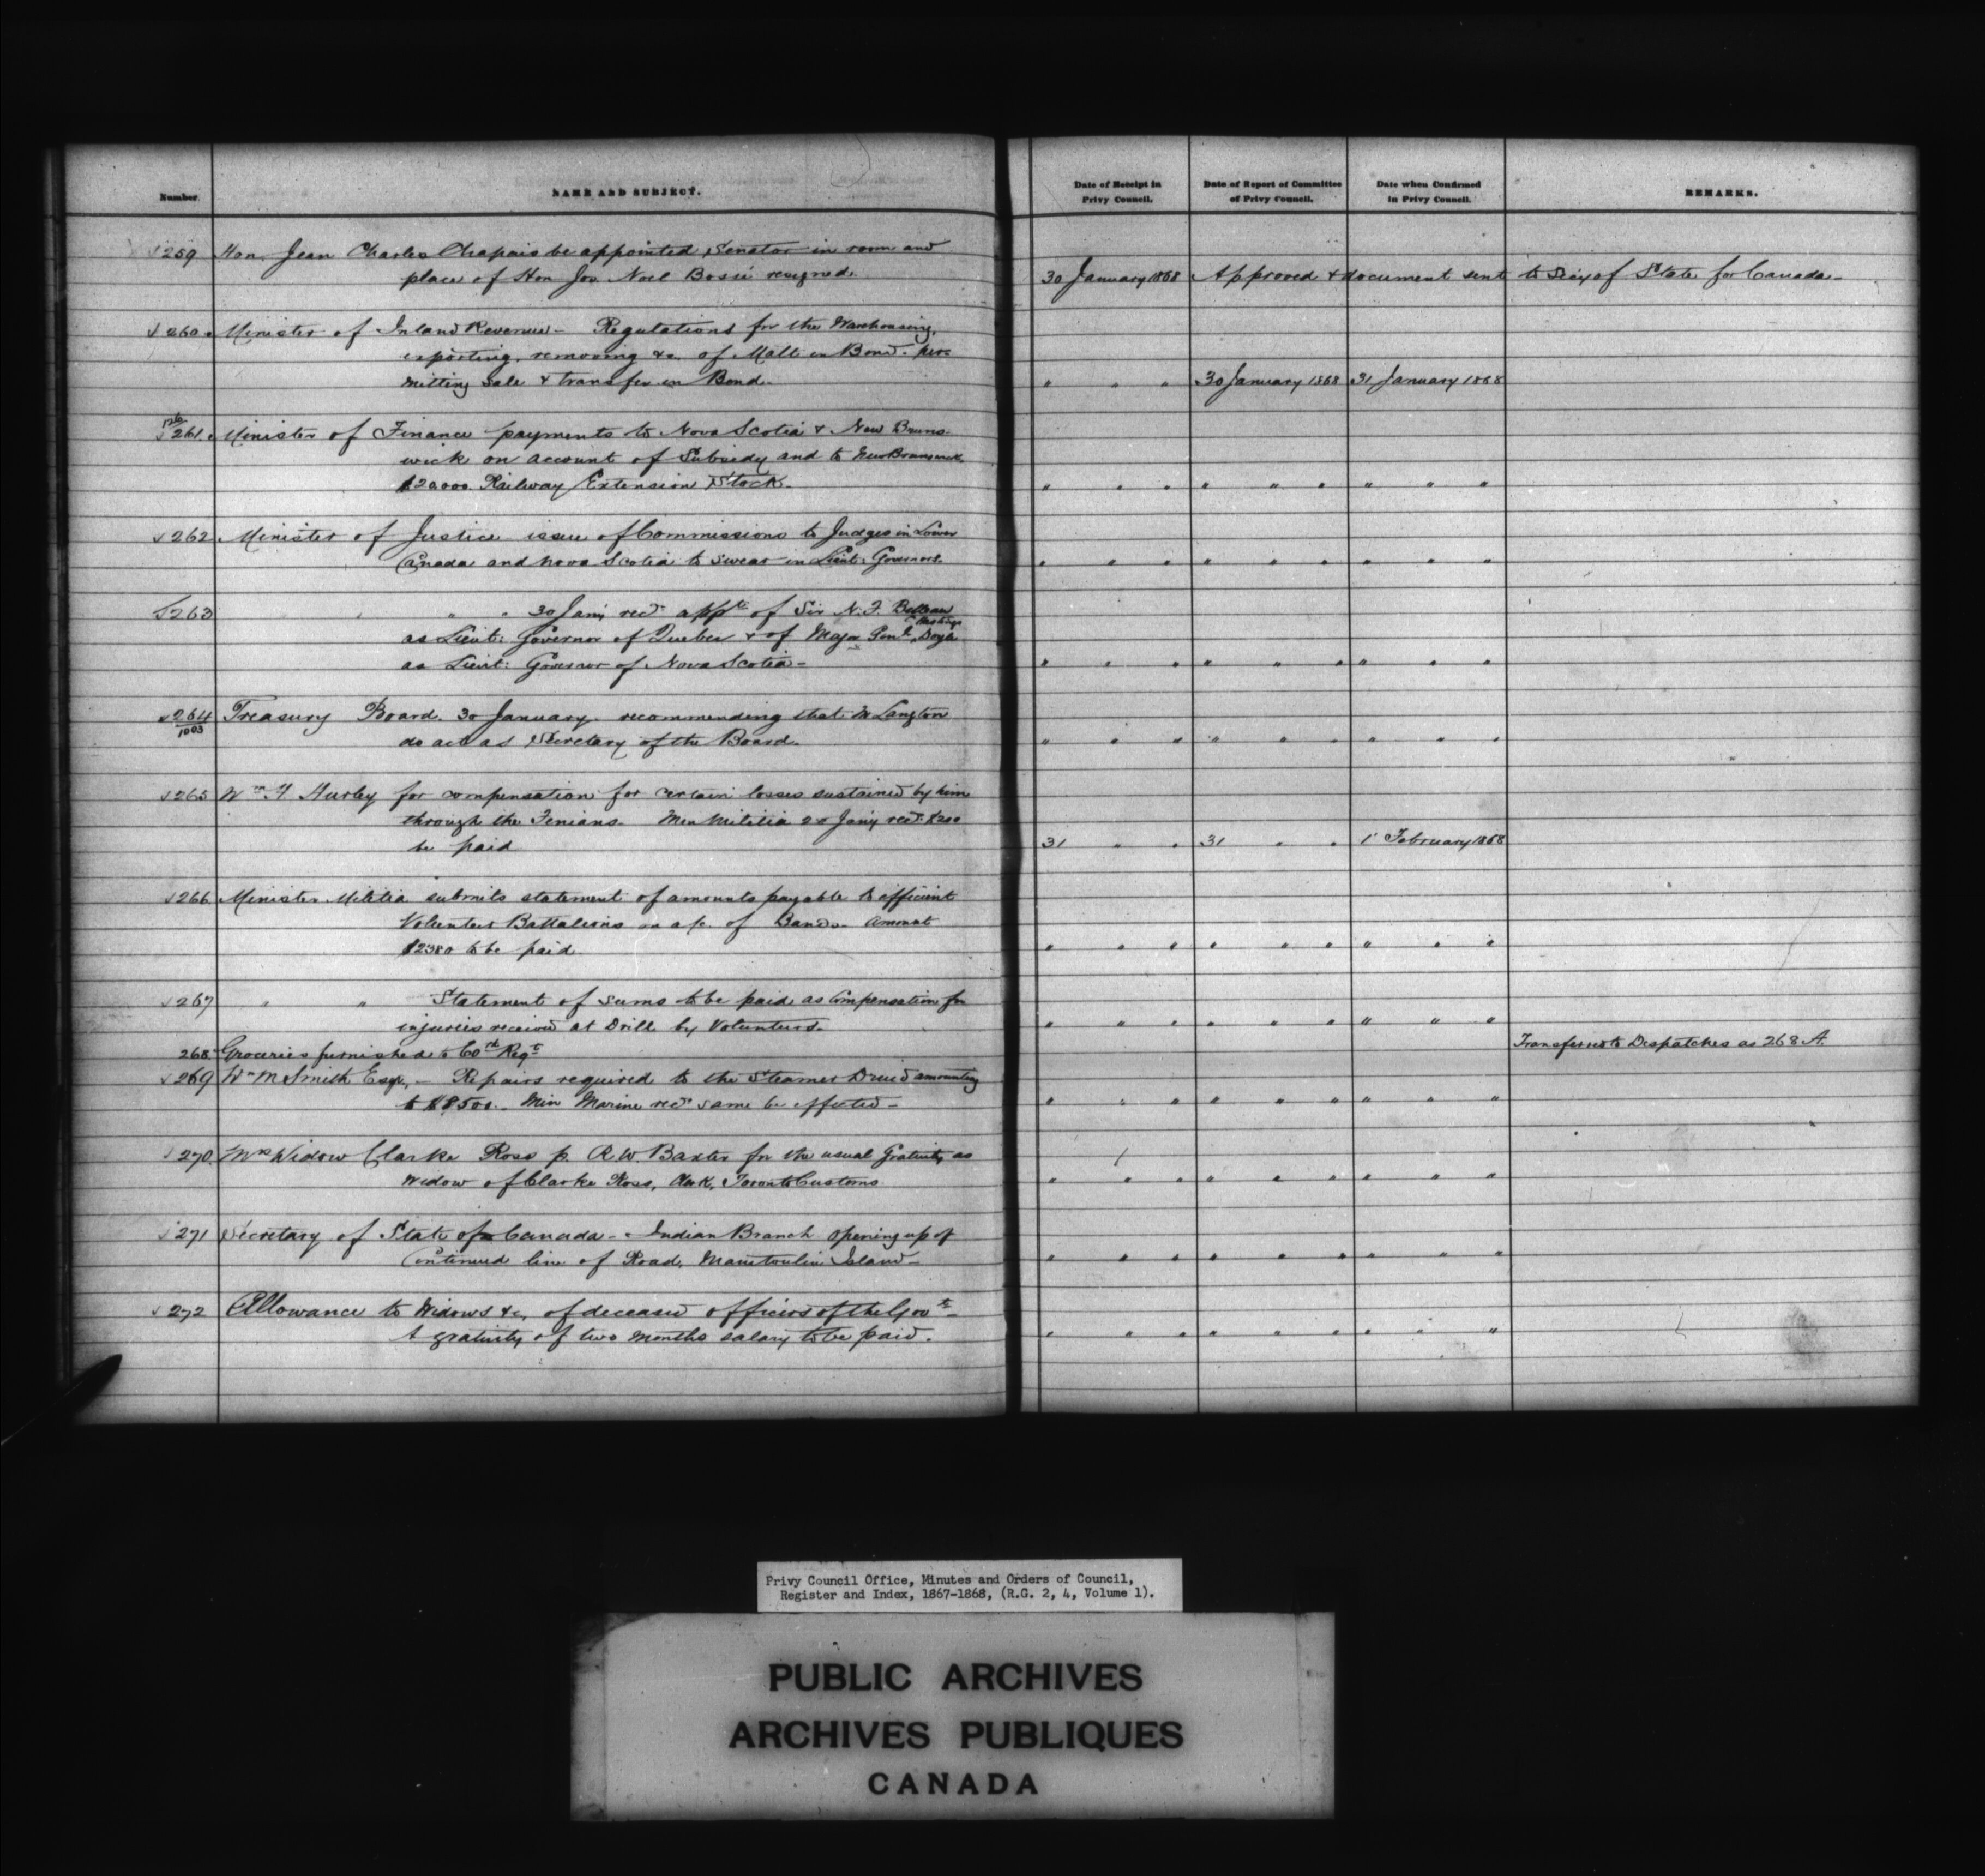 Number.
NAME AND SUBJECT.
Date of Receipt in
Privy Council.
Date of Report of Committee
of Privy Council.
Date when Confirmed
in Privy Council.
REMARKS.
259 Hon. Jean Charles Chapais be appointed Senator in room and
place of Hon Jos. Noel Bossé resigned. 30 January 1868 Approved & document sent to Secy of State for Canada -
260 Minister of Inland Revenue - Regulations for the Warehousing,
exporting, removing &c. of Malt in Bond. per=
mitting sale & transfer in Bond. " " " 30 January 1868 31 January 1868
261 Minister of Finance payments to Nova Scotia & New Bruns-
wick on account of Subsidy and to New Brunswick
$20000. Railway Extension Stock. " " " " " " " " "
262 Minister of Justice issue of Commissions to Judges in Lower
Canada and Nova Scotia to swear in Lieut: Governors. " " " " " " " " "
263 " " 30 Jany recd appt of Sir N. F. Belleau
as Lieut: Governor of Quebec & of Major Genl Hastings Doyle
as Lieut: Governor of Nova Scotia - " " " " " " " " "
264
1003 Treasury Board. 30 January. recommending that Mr Langton
do act as Secretary of the Board. " " " " " " " " "
265 Wm Hurley for compensation for certain losses sustained by him
through the Fenians. Min Militia 20 Jany recd $200
be paid 31 " " 31 " " 1 February 1868
266 Minister Militia submits statement of amounts payable to efficient
Volunteer Battalions on a/c. of Bands. Amount
$2380 to be paid. " " " " " " " " "
267 " " Statement of sums to be paid as Compensation for
injuries received at Drill by Volunteers. " " " " " " " " "
268 Groceries furnished to 60th Regt Transferred to Despatches as 268 A.
269 Wm Smith Esqr, - Repairs required to the Steamer Druid amounting
to $8,500. - Min Marine recd same be effected - " " " " " " " " "
270 Mrs Widow Clarke Ross p. R. W. Baxter for the usual Gratuity as
Widow of Clarke Ross, Clerk, Toronto Customs " " " " " " " " "
271 Secretary of State of Canada - Indian Branch opening up of
Continued line of Road, Manitoulin Island - " " " " " " " " "
272 Allowance to Widows &c, of deceased officers of the Govt -
A gratuity of two months salary to be paid. " " " " " " " " "
Privy Council Office, Minutes and Orders of Council,
Register and Index, 1867-1868, (R.G. 2, 4, Volume 1).
PUBLIC ARCHIVES
ARCHIVES PUBLIQUES
CANADA